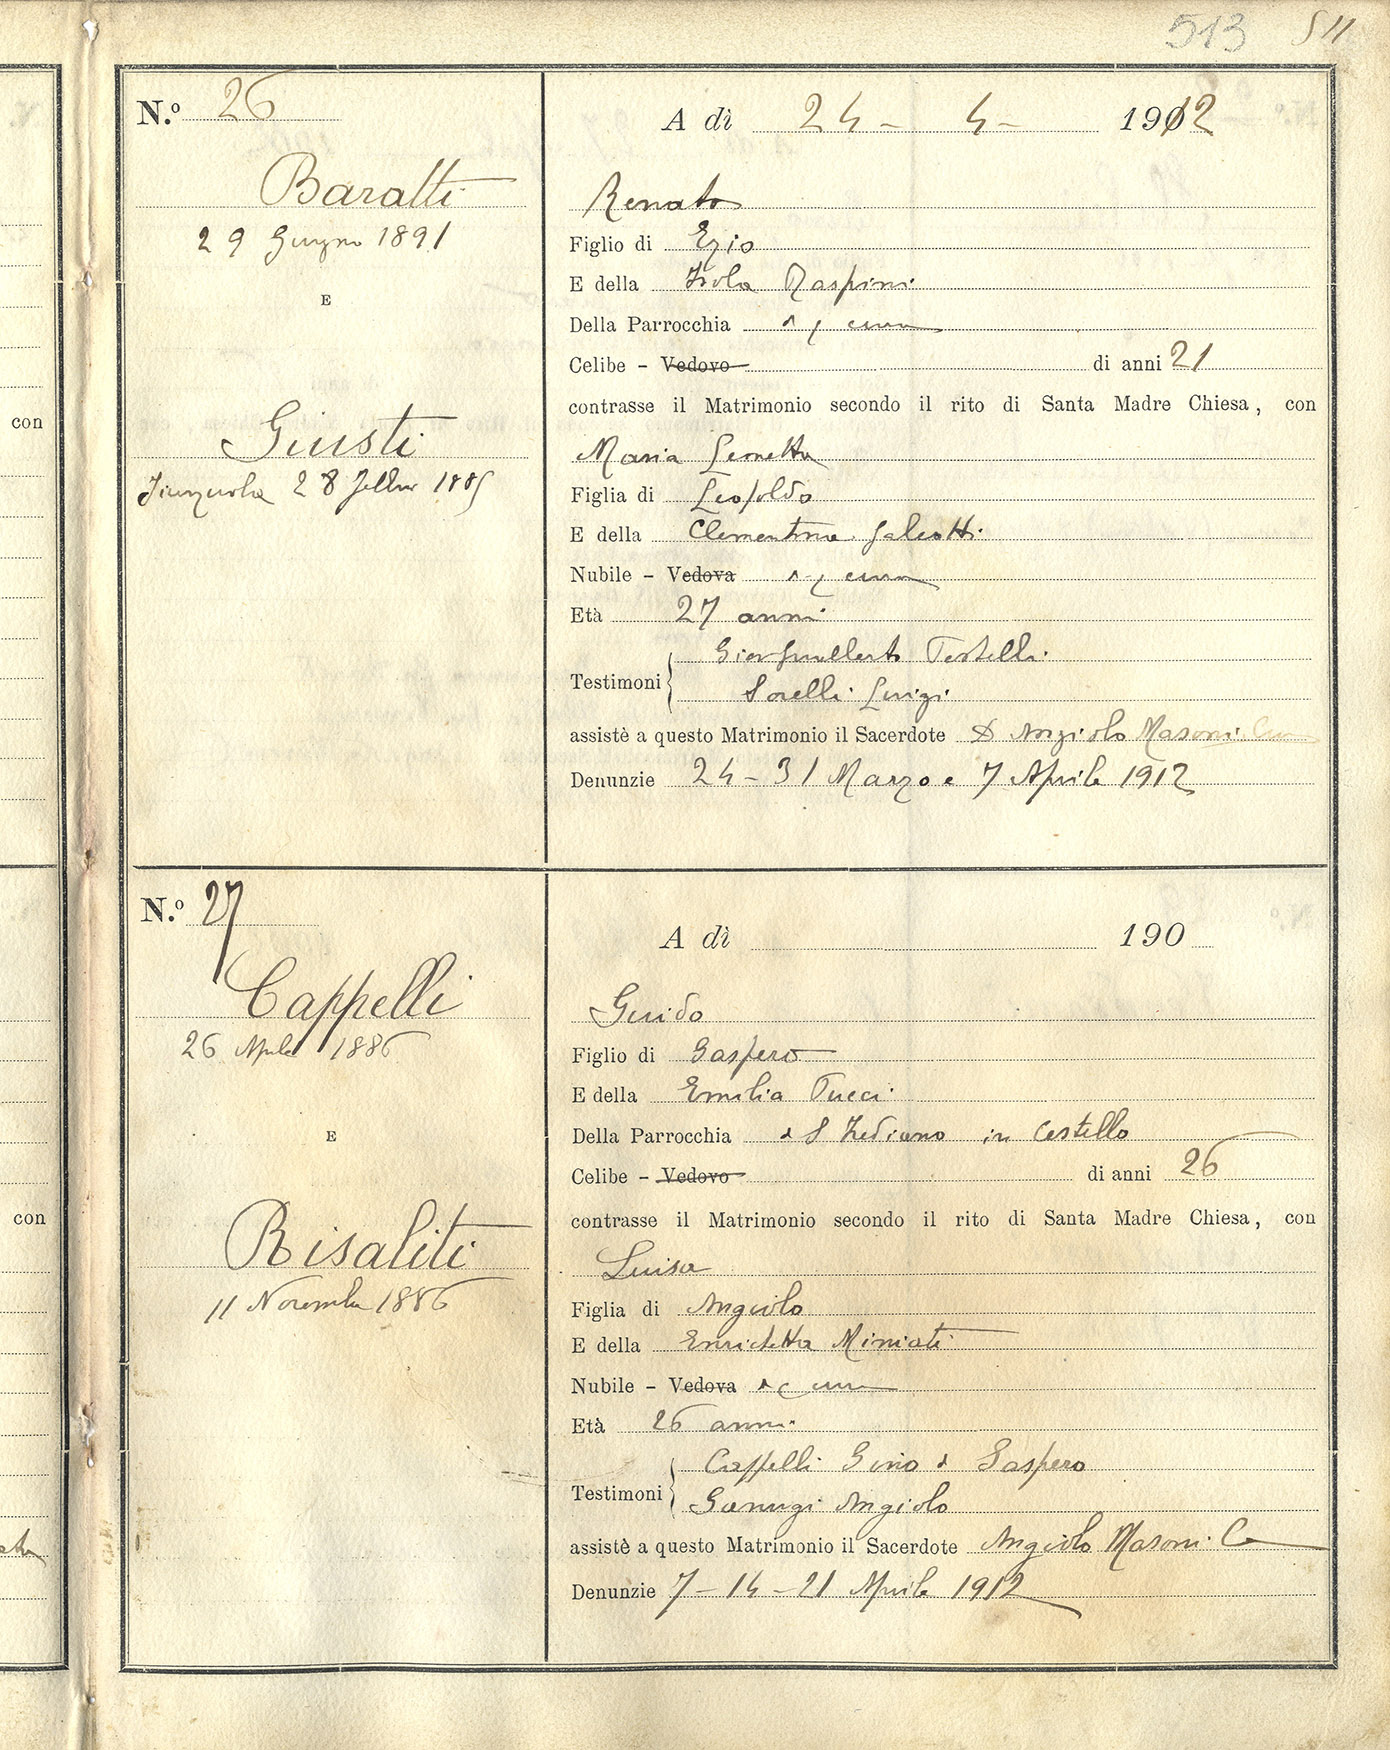 513 511
N.º 26
A dì 24 - 4 - 1912
Baratti
29 Giugno 1891
E
Giusti
28 Febbr 1885
Renato
Figlio di Ezio
E della Isola Raspini
Della Parrocchia di q cura
Celibe - Vedovo di anni 21
contrasse il Matrimonio secondo il rito di Santa Madre Chiesa, con
Maria Leonetta
Figlia di Leopoldo
E della Clementina Galeotti
Nubile - Vedova di q cura
Età 27 anni
Testimoni { Giovgualberto Testelli
Sorelli Luigi
assistè a questo Matrimonio il Sacerdote D Angiolo Masoni Cu
Denunzie 24 - 31 Marzo e 7 Aprile 1912
N.º 27
A dì 190
Cappelli
26 Aprile 1886
E
Risaliti
11 Novembre 1886
Guido
Figlio di Gaspero
E della Emilia Tucci
Della Parrocchia di S Frediano in Cestello
Celibe - Vedovo di anni 26
contrasse il Matrimonio secondo il rito di Santa Madre Chiesa, con
Luisa
Figlia di Angiolo
E della Enrichetta Miniati
Nubile - Vedova di q cura
Età 26 anni
Testimoni { Cappelli Gino di Gaspero
Ganugi Angiolo
assistè a questo Matrimonio il Sacerdote Angiolo Masoni C
Denunzie 7 - 14 - 21 Aprile 1912
con
con